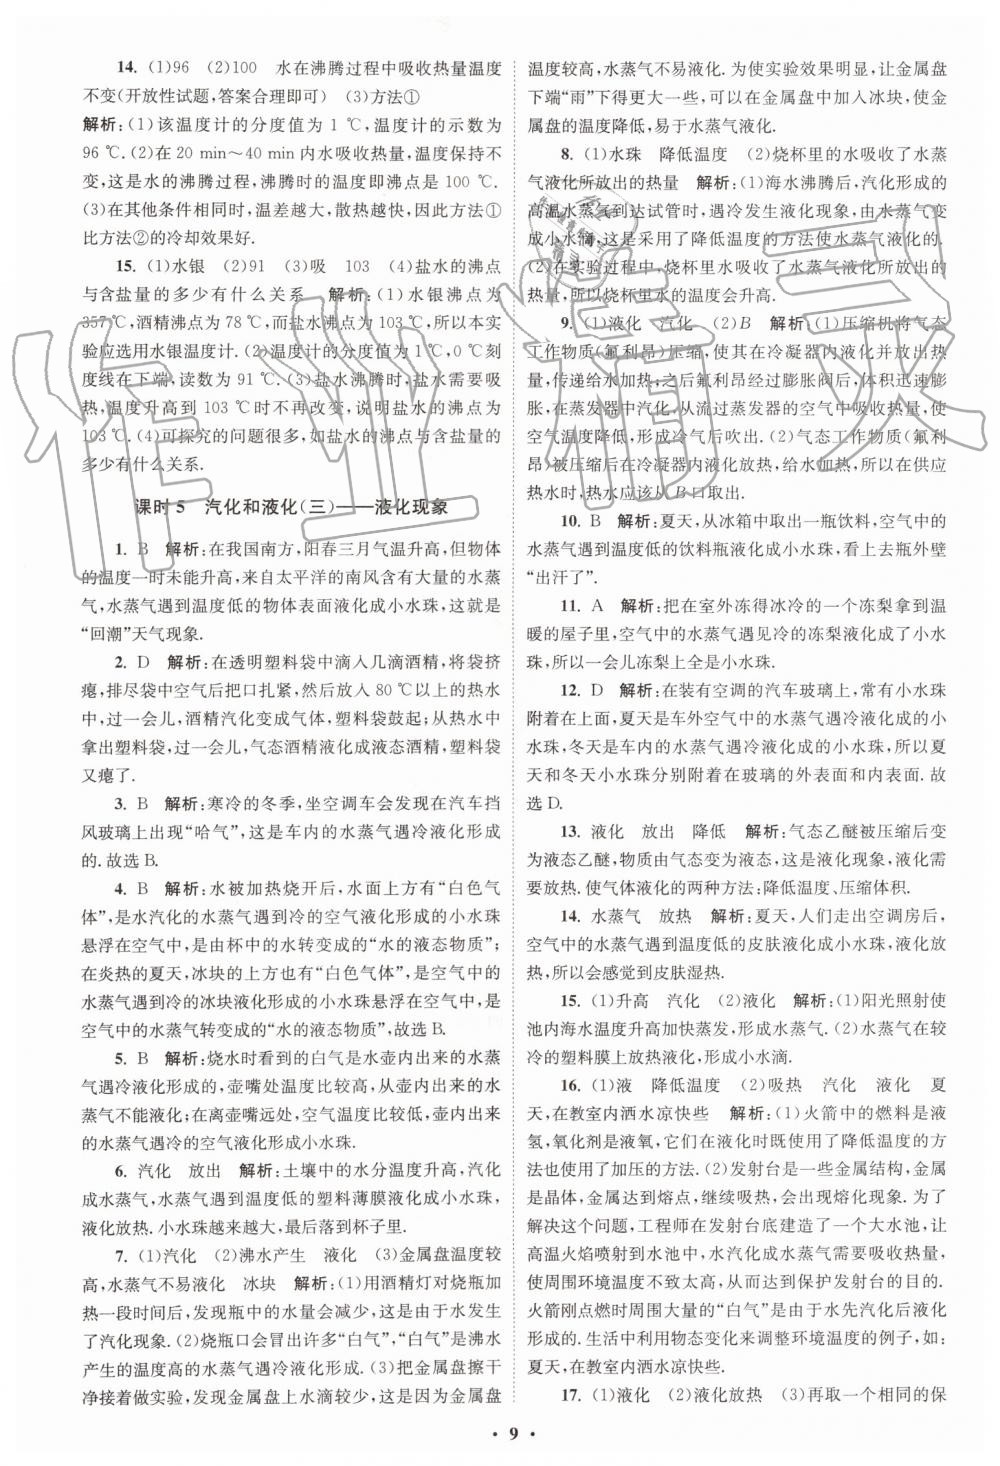 14. (1)96 (2)100 水在沸腾过程中吸收热量温度
不变(开放性试题,答案合理即可) (3)方法①
解析:(1)该温度计的分度值为 1 ℃,温度计的示数为
96 ℃.(2)在 20 min～40 min 内水吸收热量,温度保持不
变,这是水的沸腾过程,沸腾时的温度即沸点是 100 ℃.
(3)在其他条件相同时,温差越大,散热越快,因此方法①
比方法②的冷却效果好.
15. (1)水银 (2)91 (3)吸 103 (4)盐水的沸点
与含盐量的多少有什么关系 解析:(1)水银沸点为
357 ℃,酒精沸点为 78 ℃,而盐水沸点为 103 ℃,所以本实
验应选用水银温度计.(2)温度计的分度值为 1℃,0 ℃刻
度线在下端,读数为 91 ℃.(3)盐水沸腾时,温度计需要吸
热,温度升高到 103 ℃时不再改变,说明盐水的沸点为
103 ℃.(4)可探究的问题很多,如盐水的沸点与含盐量的
多少有什么关系.
课时 5 汽化和液化(三)——液化现象
1. B 解析:在我国南方,阳春三月气温升高,但物体
的温度一时未能升高,来自太平洋的南风含有大量的水蒸
气,水蒸气遇到温度低的物体表面液化成小水珠,就是
“回潮”天气现象.
2. D 解析:在透明塑料袋中滴入几滴酒精,将袋挤
瘪,排尽袋中空气后把口扎紧,然后放入 80 ℃以上的热水
中,过一会儿,酒精汽化变成气体,塑料袋鼓起;从热水中
拿出塑料袋,过一会儿,气态酒精液化成液态酒精,塑料袋
又瘪了.
3. B 解析:寒冷的冬季,坐空调车会发现在汽车挡
风玻璃上出现“哈气”,这是车内的水蒸气遇冷液化形成
的.故选 B.
4. B 解析:水被加热烧开后,水面上方有“白色气
体”,是水汽化的水蒸气遇到冷的空气液化形成的小水珠
悬浮在空气中,是由杯中的水转变成的“水的液态物质”;
在炎热的夏天,冰块的上方也有“白色气体”,是空气中的
水蒸气遇到冷的冰块液化形成的小水珠悬浮在空气中,是
由空气中的水蒸气转变成的“水的液态物质”,故选 B.
5. B 解析:烧水时看到的白气是水壶内出来的水蒸
气遇冷液化形成的,壶嘴处温度比较高,从壶内出来的水
蒸气不能液化;在离壶嘴远处,空气温度比较低,壶内出来
的水蒸气遇冷的空气液化形成小水珠.
6. 汽化 放出 解析:土壤中的水分温度升高,汽化
成水蒸气,水蒸气遇到温度低的塑料薄膜液化成小水珠,
液化放热.小水珠越来越大,最后落到杯子里.
7. (1)汽化 (2)沸水产生 液化 (3)金属盘温度较
高,水蒸气不易液化 冰块 解析:(1)用酒精灯对烧瓶加
热一段时间后,发现瓶中的水量会减少,这是由于水发生
了汽化现象.(2)烧瓶口会冒出许多“白气”,“白气”是沸水
产生的温度高的水蒸气遇冷液化形成.(3)把金属盘擦干
净接着做实验,发现金属盘上水滴较少,这是因为金属盘
温度较高,水蒸气不易液化.为使实验效果明显,让金属盘
下端“雨”下得更大一些,可以在金属盘中加入冰块,使金
属盘的温度降低,易于水蒸气液化.
8. (1)水珠 降低温度 (2)烧杯里的水吸收了水蒸
气液化所放出的热量 解析:(1)海水沸腾后,汽化形成的
高温水蒸气到达试管时,遇冷发生液化现象,由水蒸气变
成小水滴,这是采用了降低温度的方法使水蒸气液化的.
(2)在实验过程中,烧杯里水吸收了水蒸气液化所放出的
热量,所以烧杯里水的温度会升高.
9. (1)液化 汽化 (2)B 解析:(1)压缩机将气态
工作物质(氟利昂)压缩,使其在冷凝器内液化并放出热
量,传递给水加热;之后氟利昂经过膨胀阀后,体积迅速膨
胀,在蒸发器中汽化.从流过蒸发器的空气中吸收热量,使
空气温度降低,形成冷气后吹出.(2)气态工作物质(氟利
昂)被压缩后在冷凝器内液化放热,给水加热,所以在供应
热水时,热水应该从 B 口取出.
10. B 解析:夏天,从冰箱中取出一瓶饮料,空气中的
水蒸气遇到温度低的饮料瓶液化成小水珠,看上去瓶外壁
“出汗了”.
11. A 解析:把在室外冻得冰冷的一个冻梨拿到温
暖的屋子里,空气中的水蒸气遇见冷的冻梨液化成了小水
珠,所以一会儿冻梨上全是小水珠.
12. D 解析:在装有空调的汽车玻璃上,常有小水珠
附着在上面,夏天是车外空气中的水蒸气遇冷液化成的小
水珠,冬天是车内的水蒸气遇冷液化成的小水珠,所以夏
天和冬天小水珠分别附着在玻璃的外表面和内表面.故
选 D.
13. 液化 放出 降低 解析:气态乙醚被压缩后变
为液态乙醚,物质由气态变为液态,这是液化现象,液化需
要放热.使气体液化的两种方法:降低温度、压缩体积.
14. 水蒸气 放热 解析:夏天,人们走出空调房后,
空气中的水蒸气遇到温度低的皮肤液化成小水珠,液化放
热,所以会感觉到皮肤湿热.
15. (1)升高 汽化 (2)液化 解析:(1)阳光照射使
池内海水温度升高加快蒸发,形成水蒸气.(2)水蒸气在较
冷的塑料膜上放热液化,形成小水滴.
16. (1)液 降低温度 (2)吸热 汽化 液化 夏
天,在教室内洒水凉快些 解析:(1)火箭中的燃料是液
氢,氧化剂是液氧,它们在液化时既使用了降低温度的方
法也使用了加压的方法.(2)发射台是一些金属结构,金属
是晶体,金属达到熔点,继续吸热,会出现熔化现象.为了
解决这个问题,工程师在发射台底建造了一个大水池,让
高温火焰喷射到水池中,水汽化成水蒸气需要吸收热量,
使周围环境温度不致太高,从而达到保护发射台的目的.
火箭刚点燃时周围大量的“白气”是由于水先汽化后液化
形成的.生活中利用物态变化来调整环境温度的例子,如:
夏天,在教室内洒水凉快些.
17. (1)液化 (2)液化放热 (3)再取一个相同的保
• 9 •
作业精灵